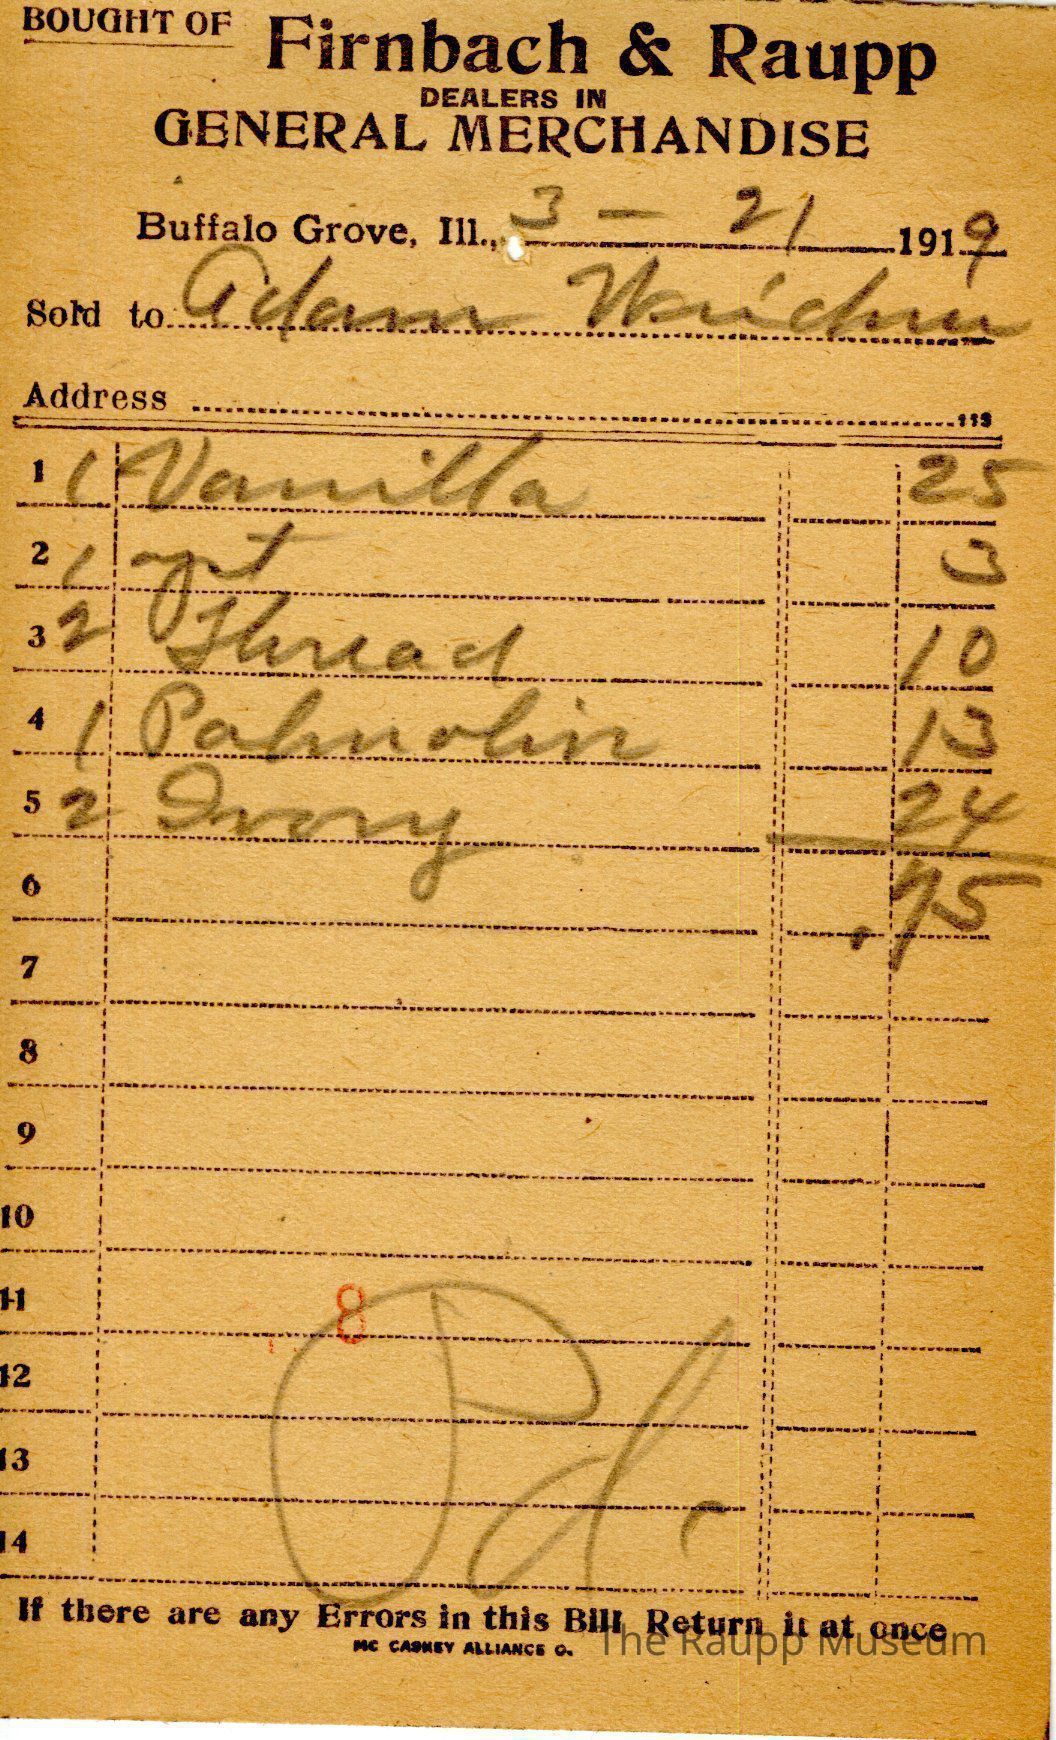 BOUGHT OF Firnbach & Raupp
DEALERS IN
GENERAL MERCHANDISE
Buffalo Grove, Ill., 3 - 21 1919
Sold to Adam
Address
1 1 Vanilla 25
2 1 3
3 2 Thread 10
4 1 Palmolin 13
5 2 Ivory 24
6 .75
7
8
9
10
11 8
12
13 Pd.
14
If there are any Errors in this Bill Return it at once
MC CASKEY ALLIANCE O.
The Raupp Museum